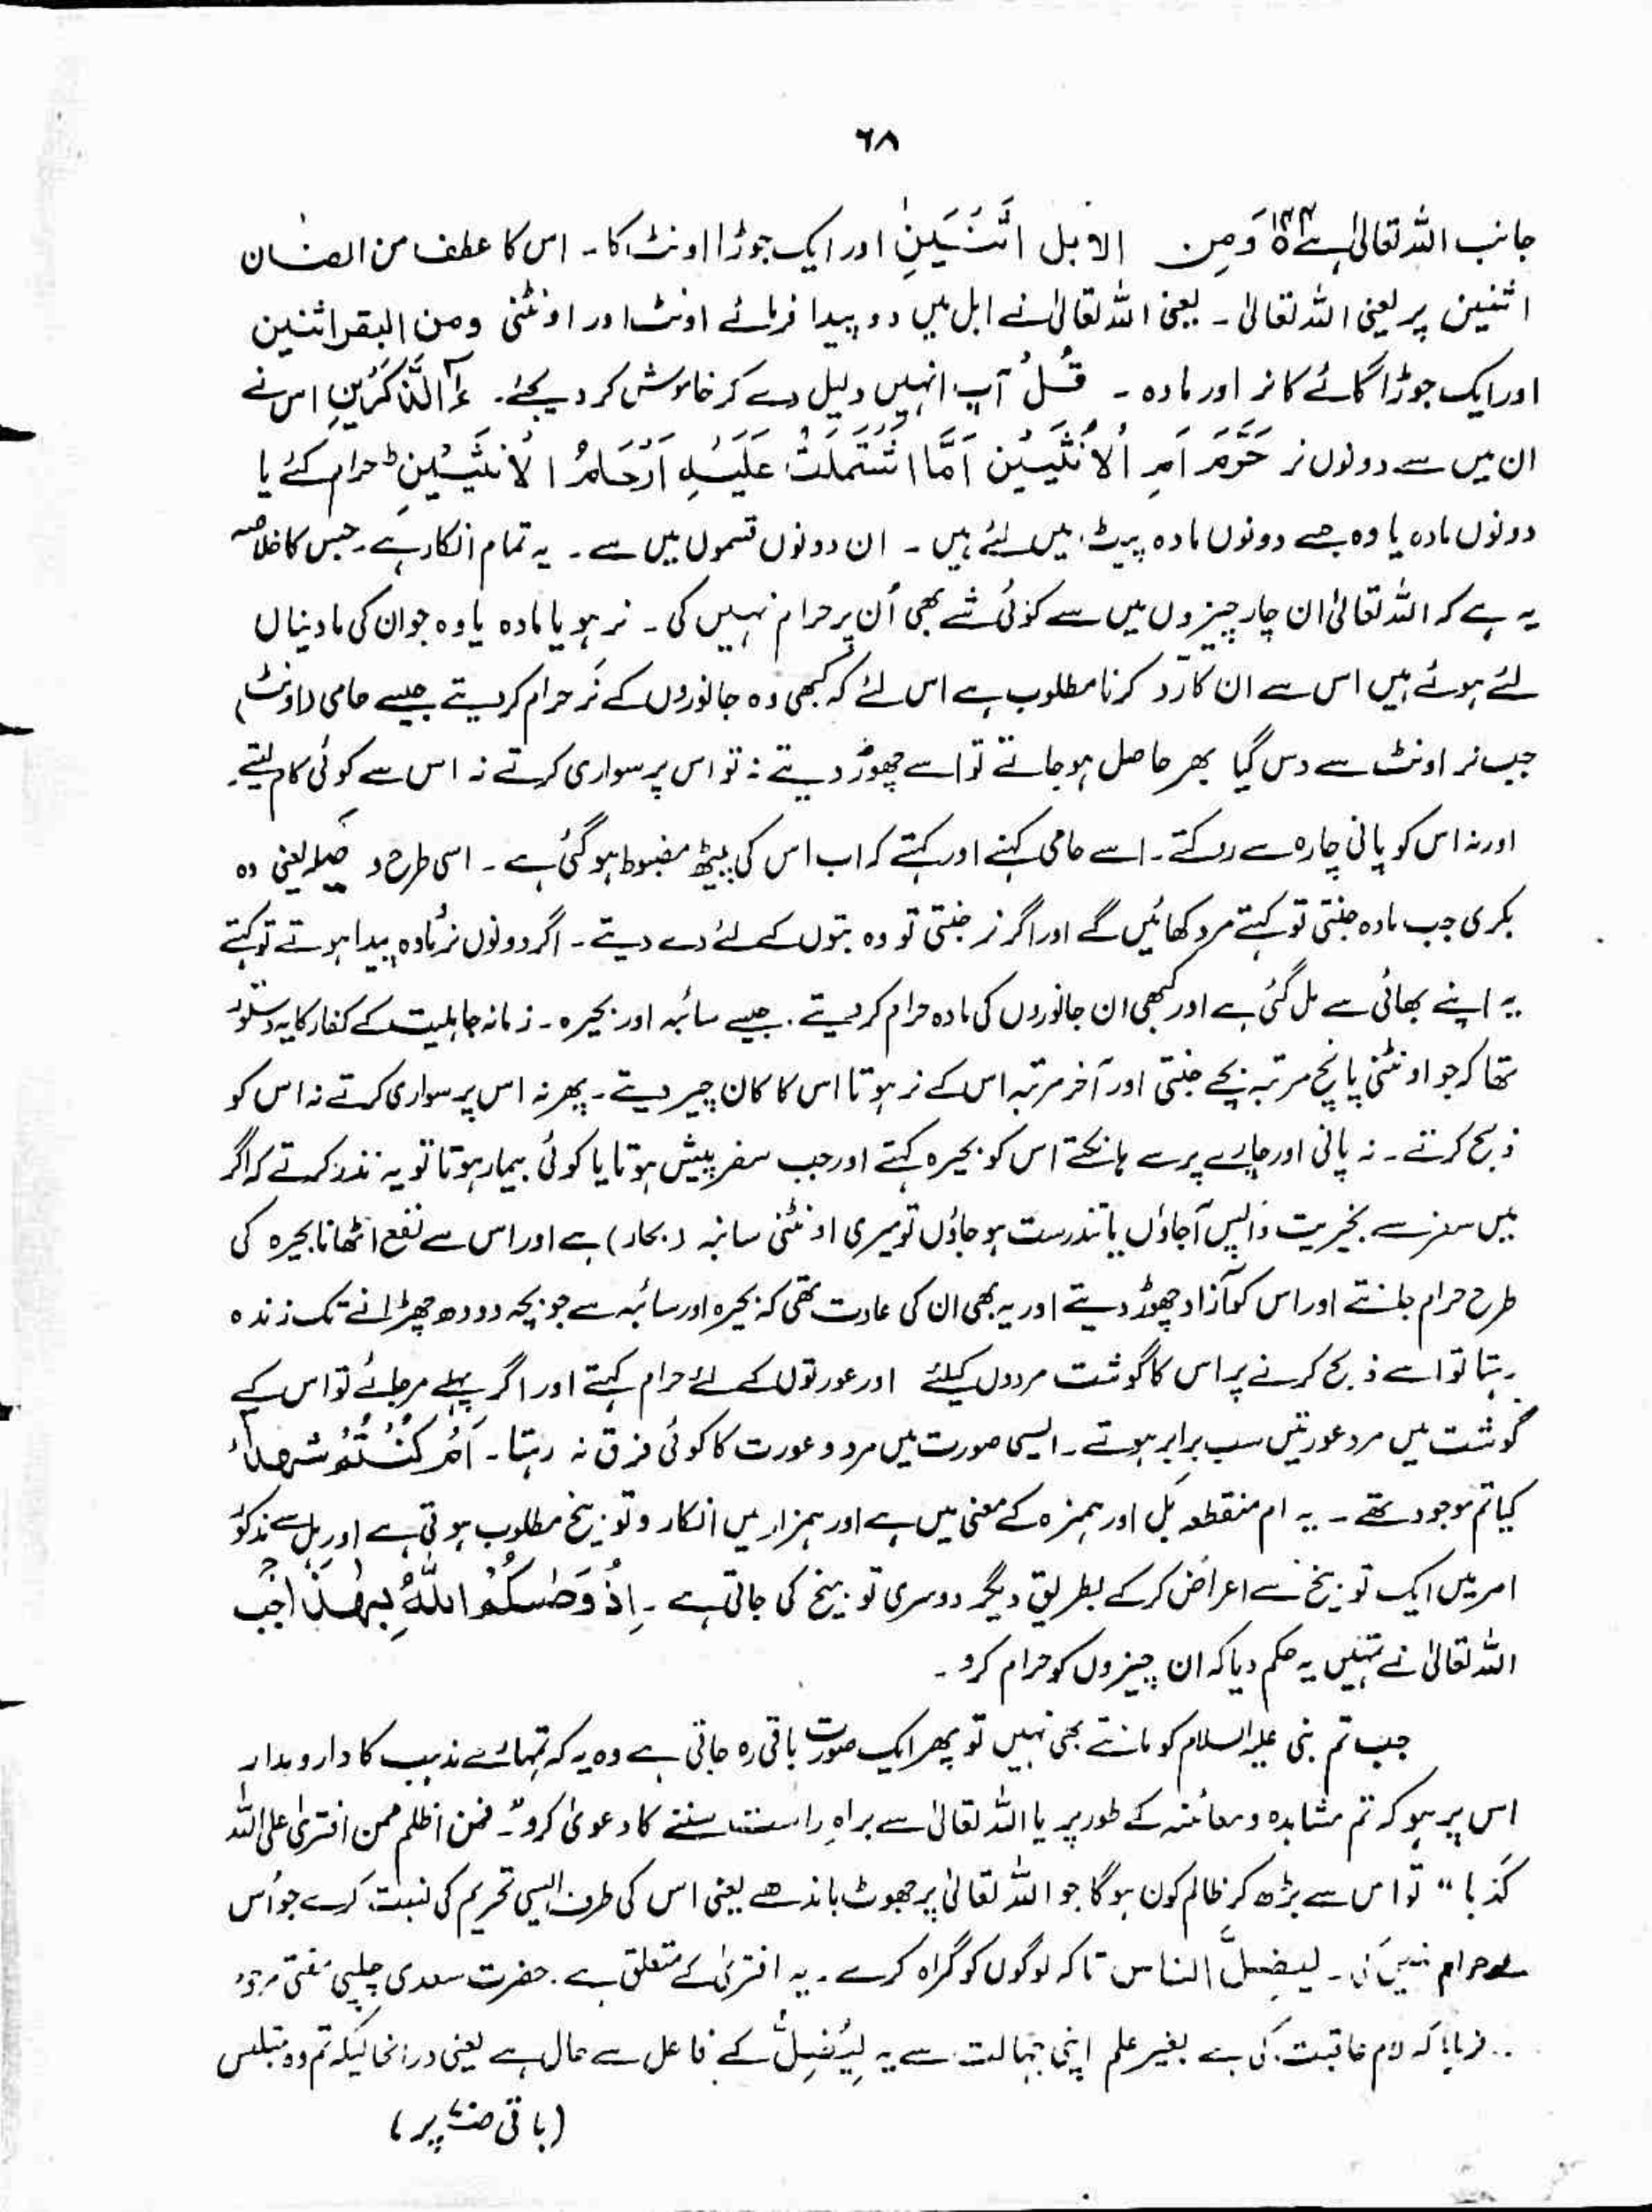 ٦٨
جانب اللہ تعالیٰ ہے ۱۴۳ وَمِن الابل اثْنَیْنِ اور ایک جوڑا اونٹ کا۔ اس کا عطف من الضان
اثنین پر یعنی اللہ تعالیٰ۔ یعنی اللہ تعالیٰ نے ابل میں دو پیدا فرمائے اونٹ اور اونٹنی ومن البقر اثنین
اور ایک جوڑا گائے کا نر اور مادہ۔ قُلْ آپ انہیں دلیل دے کر خاموش کر دیجئے۔ ءٰٓالذَّکَرَیْنِ اس نے
ان میں سے دونوں نر حَرَّمَ اَمِ الْاُنْثَیَیْنِ اَمَّا اشْتَمَلَتْ عَلَیْہِ اَرْحَامُ الْاُنْثَیَیْنِ ط حرام کئے یا
دونوں مادہ یا وہ جسے دونوں مادہ پیٹ میں لئے ہیں۔ ان دونوں قسموں میں سے۔ یہ تمام انکار ہے۔ جس کا خلاصہ
یہ ہے کہ اللہ تعالیٰ ان چار چیزوں میں سے کوئی شے بھی اُن پر حرام نہیں کی۔ نر ہو یا مادہ یا وہ جو ان کی مادینال
لئے ہوئے ہیں اس سے ان کا رَد کرنا مطلوب ہے اس لئے کہ کبھی وہ جانوروں کے نَر حرام کر دیتے جیسے حامی (اونٹ)
جب نر اونٹ سے دس گیا بھر حاصل ہو جاتے تو اسے چھوڑ دیتے نہ تو اس پر سواری کرتے نہ اس سے کوئی کام لیتے۔
اور نہ اس کو پانی چارہ سے روکتے۔ اسے حامی کہتے اور کہتے کہ اب اس کی پیٹھ مضبوط ہو گئی ہے۔ اسی طرح وصیلہ یعنی وہ
بکری جب مادہ جنتی تو کہتے مرد کھائیں گے اور اگر نر جنتی تو وہ بتوں کے لئے دے دیتے۔ اگر دونوں نر مادہ پیدا ہوتے تو کہتے
یہ اپنے بھائی سے مل گئی ہے اور کبھی ان جانوروں کی مادہ حرام کر دیتے۔ جیسے سائبہ اور بحیرہ۔ زمانہ جاہلیت کے کفار کا یہ دستور
تھا کہ جو اونٹنی پانچ مرتبہ بچے جنتی اور آخر مرتبہ اس کے نر ہوتا اس کا کان چیر دیتے۔ پھر نہ اس پر سواری کرتے نہ اس کو
ذبح کرتے۔ نہ پانی اور چارے پر سے ہانکتے اس کو بحیرہ کہتے اور جب سفر پیش ہوتا یا کوئی بیمار ہوتا تو یہ نذر کرتے کہ اگر
میں سفر سے بخیریت واپس آجاؤں یا تندرست ہو جاؤں تو میری اونٹنی سائبہ (بجار) ہے اور اس سے نفع اٹھانا بحیرہ کی
طرح حرام جانتے اور اس کو آزاد چھوڑ دیتے اور یہ بھی ان کی عادت تھی کہ بحیرہ اور سائبہ سے جو بچہ دودھ چھڑانے تک زندہ
رہتا تو اسے ذبح کرنے پر اس کا گوشت مردوں کیلئے اور عورتوں کے لئے حرام کہتے اور اگر پہلے مر جائے تو اس کے
گوشت میں مرد عورتیں سب برابر ہوتے۔ ایسی صورت میں مرد و عورت کا کوئی فرق نہ رہتا۔ اَمْ کُنْتُمْ شُھَدَآءَ
کیا تم موجود تھے۔ یہ ام منقطعہ بَل اور ہمزہ کے معنی میں ہے اور ہمزہ میں انکار و توبیخ مطلوب ہوتی ہے اور بل سے مذکور
امر میں ایک توبیخ سے اعراض کر کے بطریق دیگر دوسری توبیخ کی جاتی ہے۔ اِذْ وَصّٰىکُمُ اللّٰہُ بِھٰذَا جب
اللہ تعالیٰ نے تمہیں یہ حکم دیا کہ ان چیزوں کو حرام کرو۔
جب تم نبی علیہ السلام کو مانتے بھی نہیں تو پھر ایک صورت باقی رہ جاتی ہے وہ یہ کہ تمہارے مذہب کا دارومدار
اس پر ہو کہ تم مشاہدہ و معائنہ کے طور پر یا اللہ تعالیٰ سے براہِ راست سننے کا دعویٰ کرو۔ فمن اظلم ممن افتریٰ علی اللہ
کذبا" تو اس سے بڑھ کر ظالم کون ہوگا جو اللہ تعالیٰ پر جھوٹ باندھے یعنی اس کی طرف ایسی تحریم کی نسبت کرے جو اُس
نے حرام نہیں کی۔ لیضلَّ الناس تاکہ لوگوں کو گمراہ کرے۔ یہ افتریٰ کے متعلق ہے۔ حضرت سعدی چلپی مفتی مرحوم
.. فرمایا کہ لام عاقبت کی ہے بغیر علم اپنی جہالت سے یہ لِیُضِلَّ کے فاعل سے حال ہے یعنی درانحالیکہ تم وہ متلبس
(باقی صنئ پر)